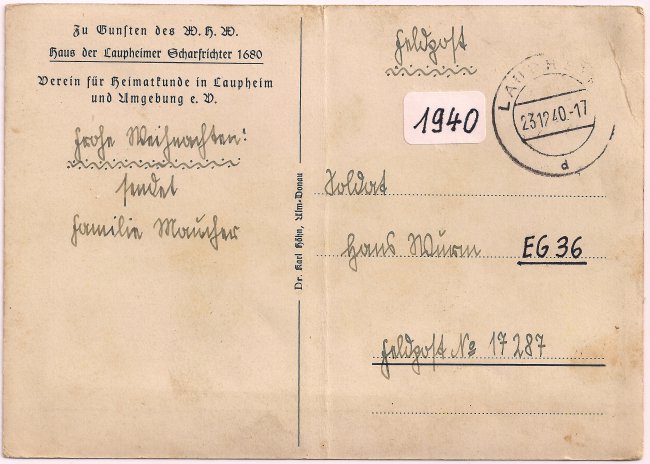 Zu Gunsten des W. H. W.
Haus der Laupheimer Scharfrichter 1680
Verein für Heimatkunde in Laupheim
und Umgebung e. V.
Frohe Weihnachten!
sendet
Familie Maucher
Dr. Karl Höhn, Ulm-Donau
Feldpost
1940
LAUPHEIM
23.12.40.-17
d
Soldat
Hans Wurm
EG 36
Feldpost No 17287